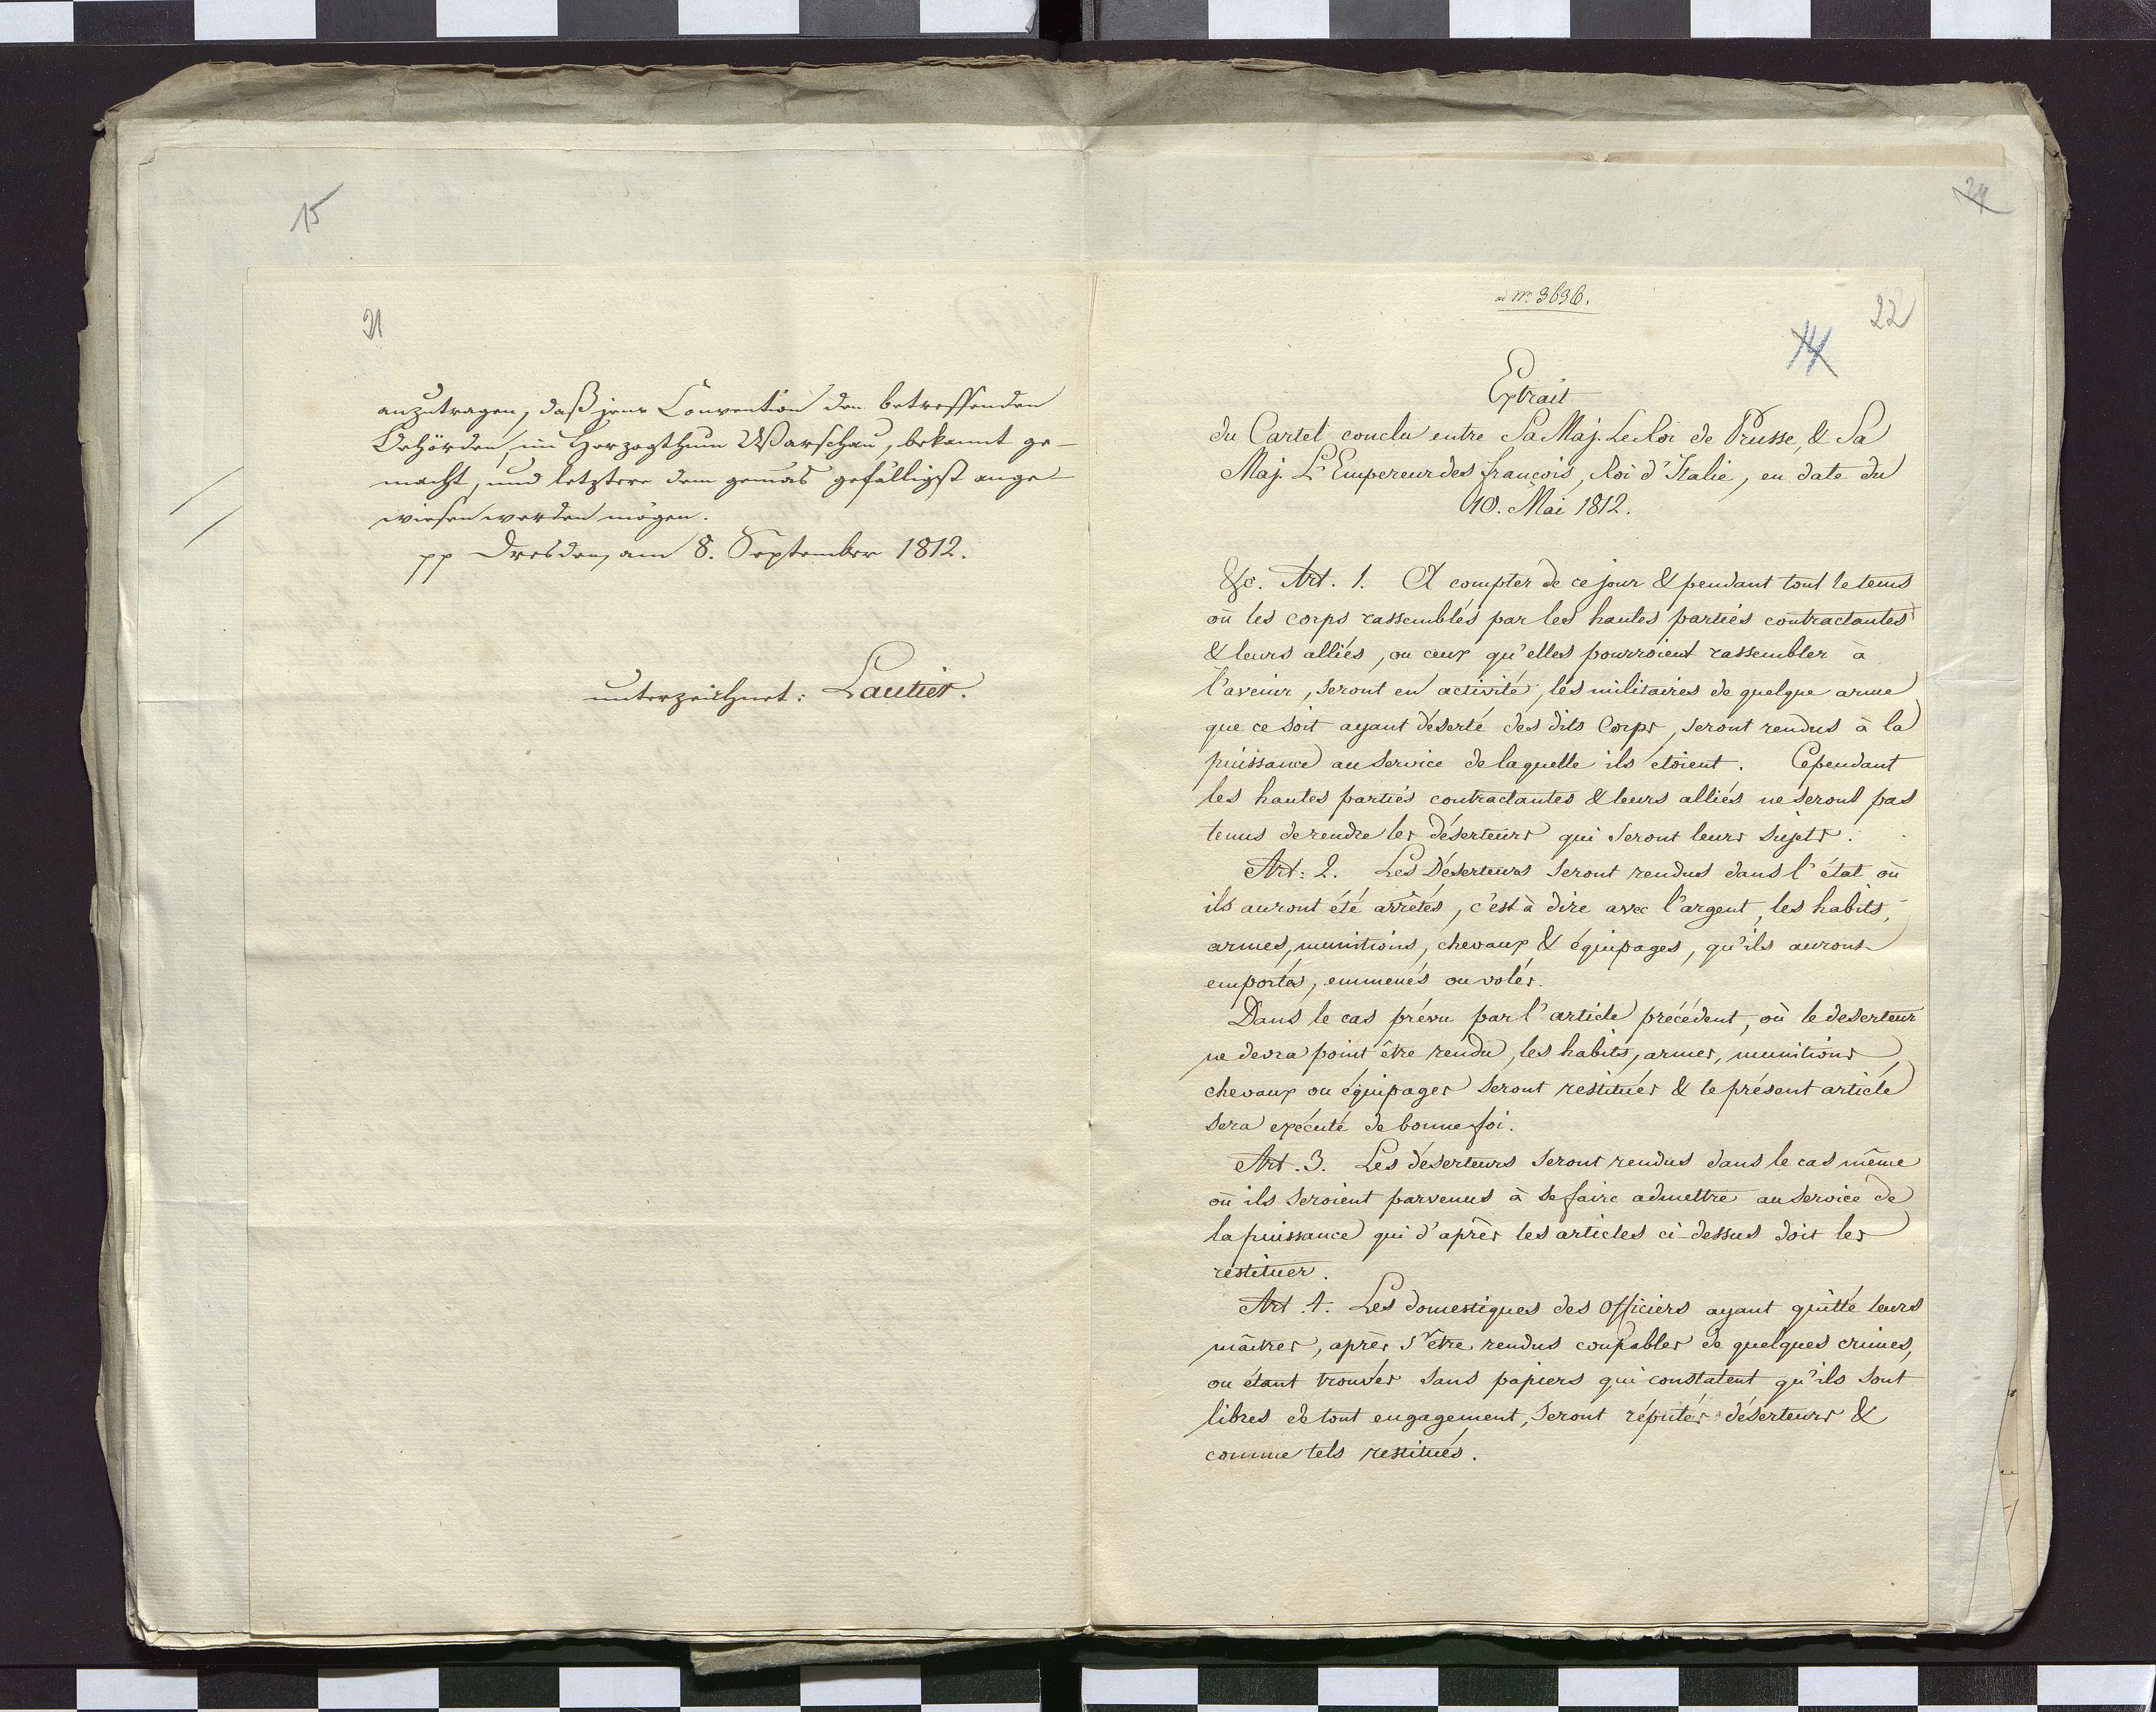 15
21
anzutragen, daß jene Convention den betreffenden
Behörden, im Herzogthum Warschau, bekannt ge-
macht, und letztere dem gemäs gefälligst ange-
wiesen werden mögen.
pp Dresden, am 8. September 1812.
unterzeichnet: Lautier.
24
ad Nr. 3696.
22
14
Extrait
du Cartel conclu entre Sa Maj. Le Roi de Prusse, & Sa
Maj. L'Empereur des françois, Roi d'Italie, en date du
10. Mai 1812.
&c. Art. 1. A compter de ce jour & pendant tout le tems
où les corps rassemblés par les hautes parties contractantes
& leurs alliés, ou ceux qu'elles pourroient rassembler à
l'avenir, seront en activité, les militaires de quelque arme
que ce soit ayant déserté des dits Corps, seront rendus à la
puissance au service de laquelle ils étoient. Cependant
les hautes parties contractantes & leurs alliés ne seront pas
tenus de rendre les déserteurs qui seront leurs sujets.
Art: 2. Les Déserteurs seront rendus dans l'état où
ils auront été arrêtés, c'est à dire avec l'argent, les habits,
armes, munitions, chevaux & équipages, qu'ils auront
emportés, emmenés ou volés.
Dans le cas prévu par l'article précédent, où le deserteur
ne devra point être rendu, les habits, armes, munitions,
chevaux ou équipages seront restitués & le présent article
sera exécuté de bonne foi.
Art. 3. Les déserteurs seront rendus dans le cas même
où ils seroient parvenus à se faire admettre au service de
la puissance qui d'après les articles ci-dessus doit les
restituer.
Art. 4. Les domestiques des Officiers ayant quitté leurs
maîtres, après s'être rendus coupables de quelques crimes,
ou étant trouvés sans papiers qui constatent qu'ils sont
libres de tout engagement, seront réputés déserteurs &
comme tels restitués.